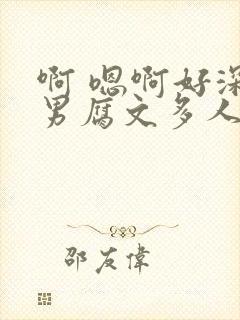 啊 嗯啊好深
男腐文多人
邵友伟